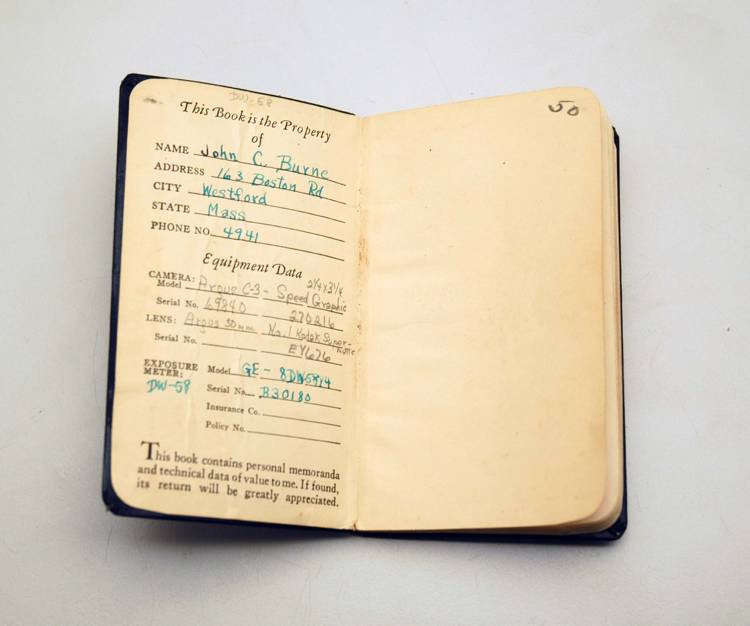 DW-58
This Book is the Property
of
NAME John C Burne
ADDRESS 163 Boston Rd
CITY Westford
STATE Mass
PHONE NO. 4941
Equipment Data
CAMERA: 2¼x3¼
Model Argus C-3 - Speed Graphic
Serial No. 69840 270216
LENS: Argus 50mm No. 1 Kodak Super-
Serial No. EY676
EXPOSURE METER: Model GE - 8DW58Y4
DW-58 Serial No. B30180
Insurance Co.
Policy No.
This book contains personal memoranda
and technical data of value to me. If found,
its return will be greatly appreciated.
50